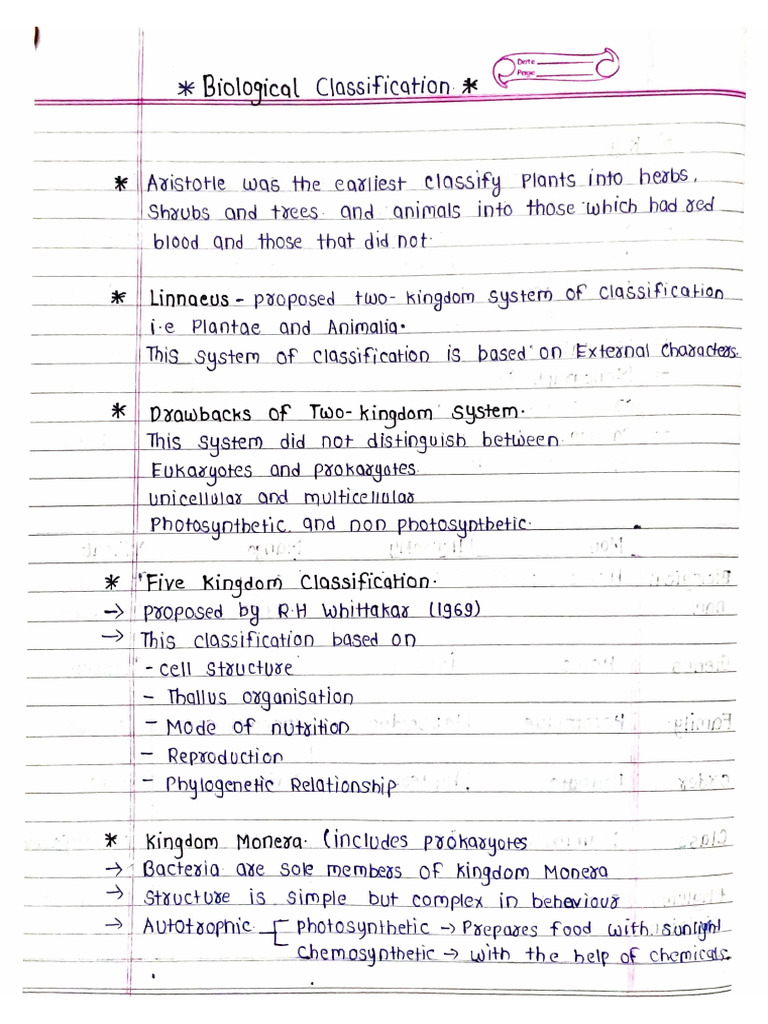 * Biological Classification. *
Date
Page
* Aristotle was the earliest classify Plants into herbs,
Shrubs and trees and animals into those which had red
blood and those that did not.
* Linnaeus - proposed two-kingdom system of classification
i.e Plantae and Animalia.
This system of classification is based on External Characters.
* Drawbacks of Two-kingdom system.
This system did not distinguish between
Eukaryotes and prokaryotes.
unicellular and multicellular
Photosynthetic and non photosynthetic.
* Five Kingdom Classification.
→ proposed by R.H Whittakar (1969)
→ This classification based on
- cell structure
- Thallus organisation
- Mode of nutrition
- Reproduction
- Phylogenetic Relationship
* Kingdom Monera. (includes prokaryotes
→ Bacteria are sole members of kingdom Monera
→ Structure is simple but complex in behaviour
→ Autotrophic photosynthetic → Prepares food with sunlight
Chemosynthetic → with the help of chemicals.